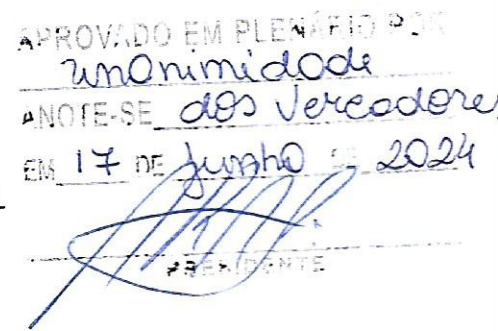 APROVADO EM PLENÁRIO POR
unanimidade
ANOTE-SE dos Vereadores
EM 17 DE Junho DE 2024
PRESIDENTE